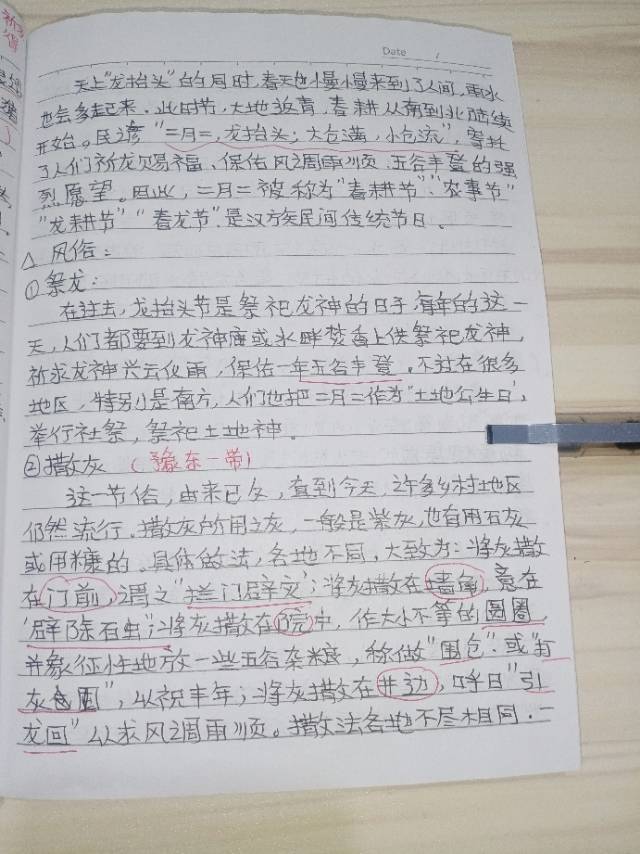 Date /
天上"龙抬头"的同时,春天也慢慢来到了人间,雨水
也会多起来.此时节,大地返青,春耕从南到北陆续
开始。民谚"二月二,龙抬头;大仓满,小仓流",寄托
了人们祈龙赐福、保佑风调雨顺、五谷丰登的强
烈愿望。因此,二月二被称为"春耕节"、"农事节"
"龙耕节""春龙节".是汉族民间传统节日。
△风俗:
①祭龙:
在往去,龙抬头节是祭祀龙神的日子,每年的这一
天,人们都要到龙神庙或水畔焚香上供祭祀龙神,
祈求龙神兴云化雨,保佑一年五谷丰登.不过在很多
地区,特别是南方,人们也把二月二作为"土地公生日",
举行社祭,祭祀土地神。
②撒灰(豫东一带)
这一节俗,由来已久,直到今天,许多乡村地区
仍然流行.撒灰所用之灰,一般是柴灰,也有用石灰
或用糠的.具体做法,各地不同,大致为:将灰撒
在门前,谓之"拦门辟灾";将灰撒在墙角,意在
"辟除百虫";将灰撒在院中,作大小不等的圆圈,
并象征性地放一些五谷杂粮,称做"围仓"或"打
灰囤",以祝丰年;将灰撒在井边,呼曰"引
龙回"以求风调雨顺。撒法各地不尽相同.一